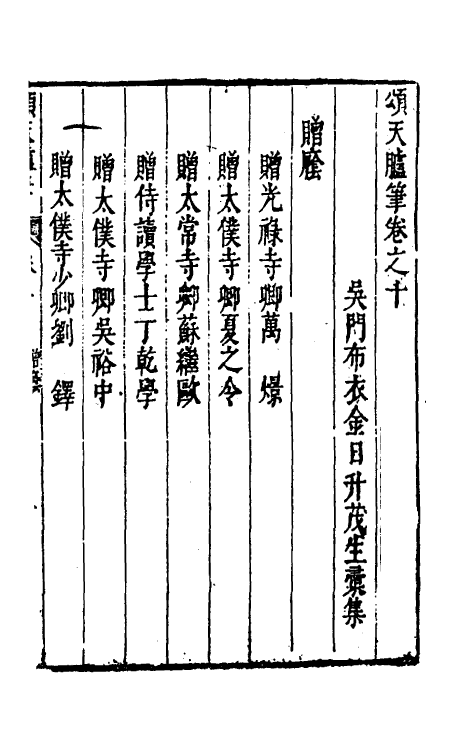 頌天臚筆卷之十
吳門布衣金日升茂生彙集
贈廕
贈光祿寺卿萬燝
贈太僕寺卿夏之令
贈太常寺卿蘇繼歐
贈侍讀學士丁乾學
贈太僕寺卿吳裕中
贈太僕寺少卿劉鐸